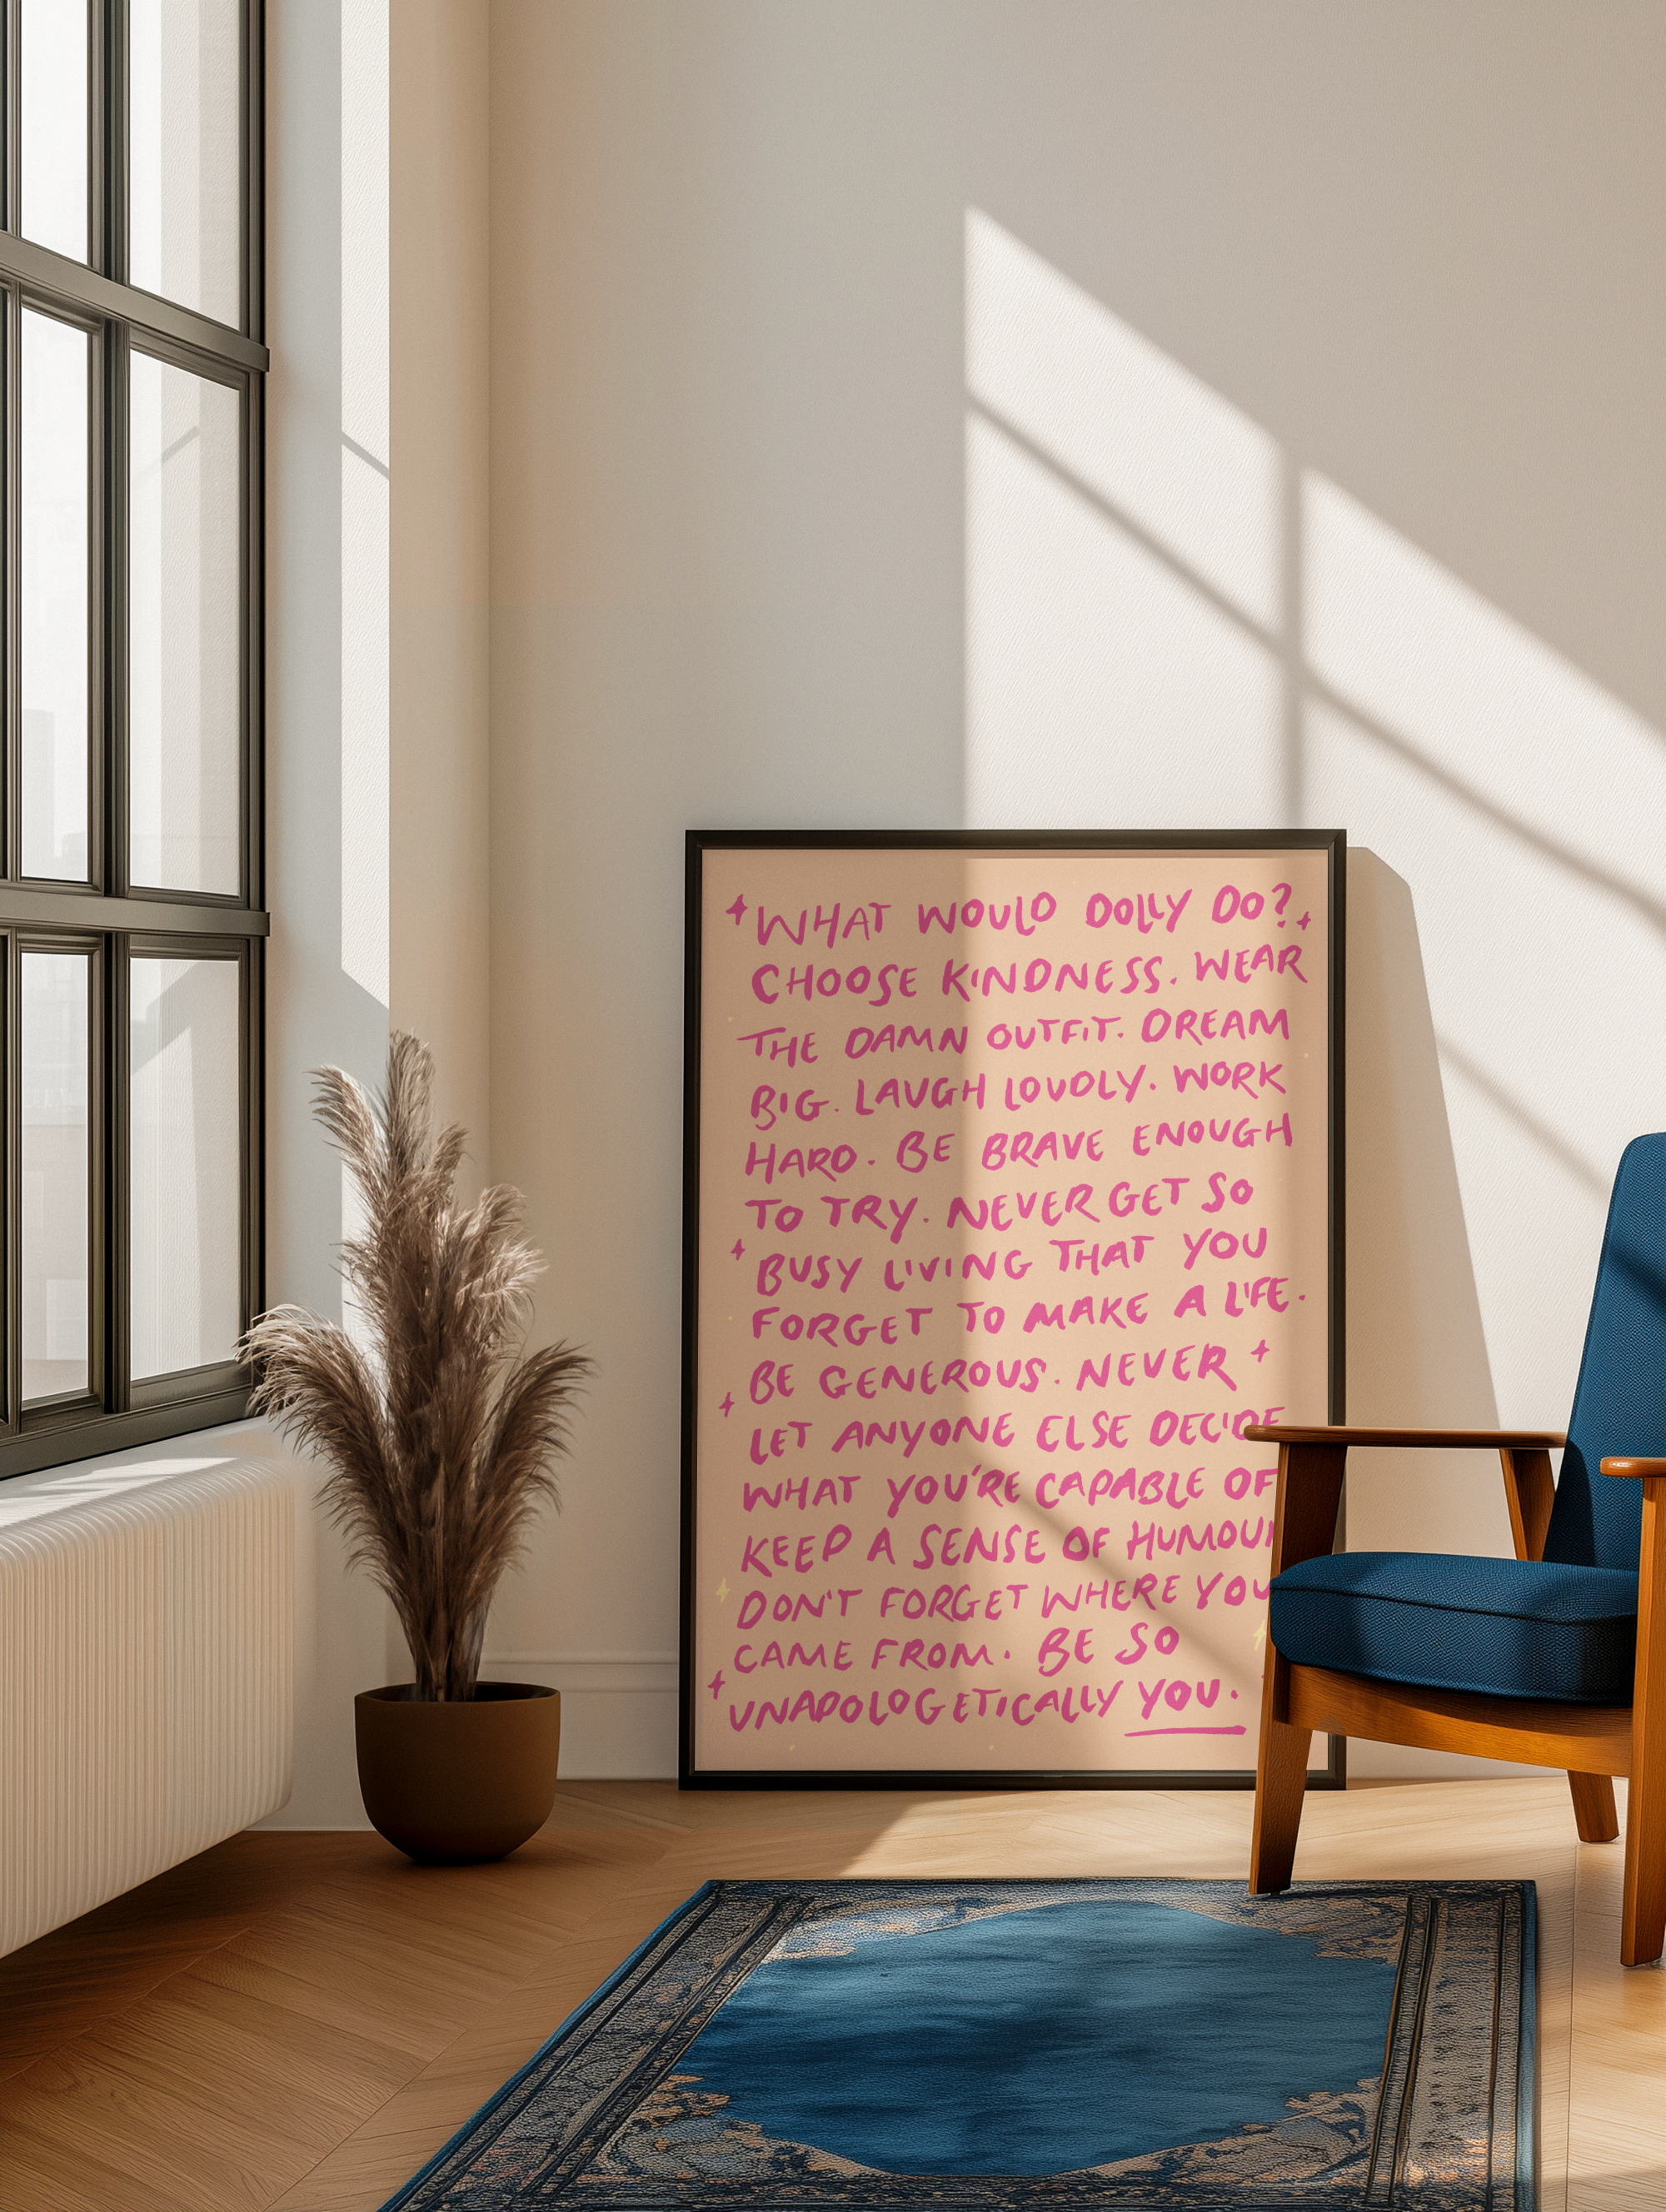 WHAT WOULD DOLLY DO?
CHOOSE KINDNESS. WEAR
THE DAMN OUTFIT. DREAM
BIG. LAUGH LOUDLY. WORK
HARD. BE BRAVE ENOUGH
TO TRY. NEVER GET SO
BUSY LIVING THAT YOU
FORGET TO MAKE A LIFE.
BE GENEROUS. NEVER
LET ANYONE ELSE DECIDE
WHAT YOU'RE CAPABLE OF
KEEP A SENSE OF HUMOUR
DON'T FORGET WHERE YOU
CAME FROM. BE SO
UNAPOLOGETICALLY YOU.